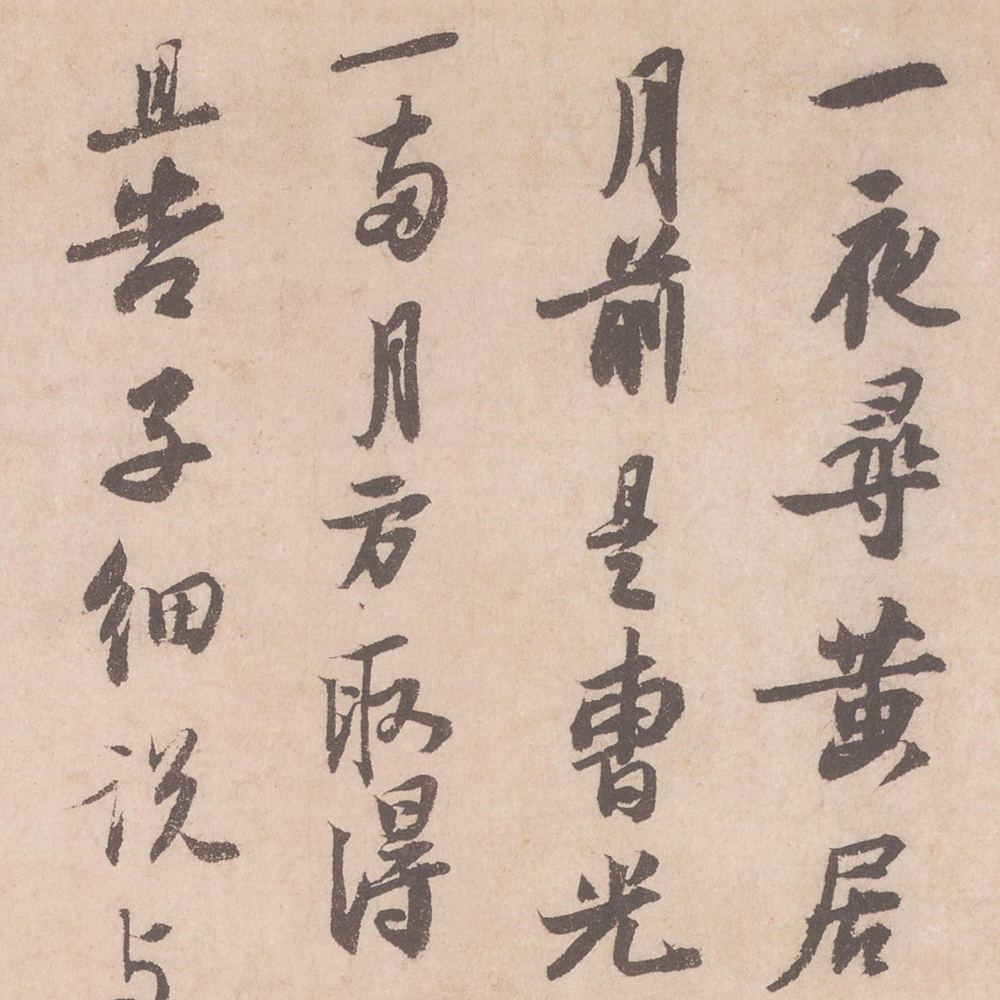 一夜尋黄居
月前是曹光
一両月方取得
且告子細説与